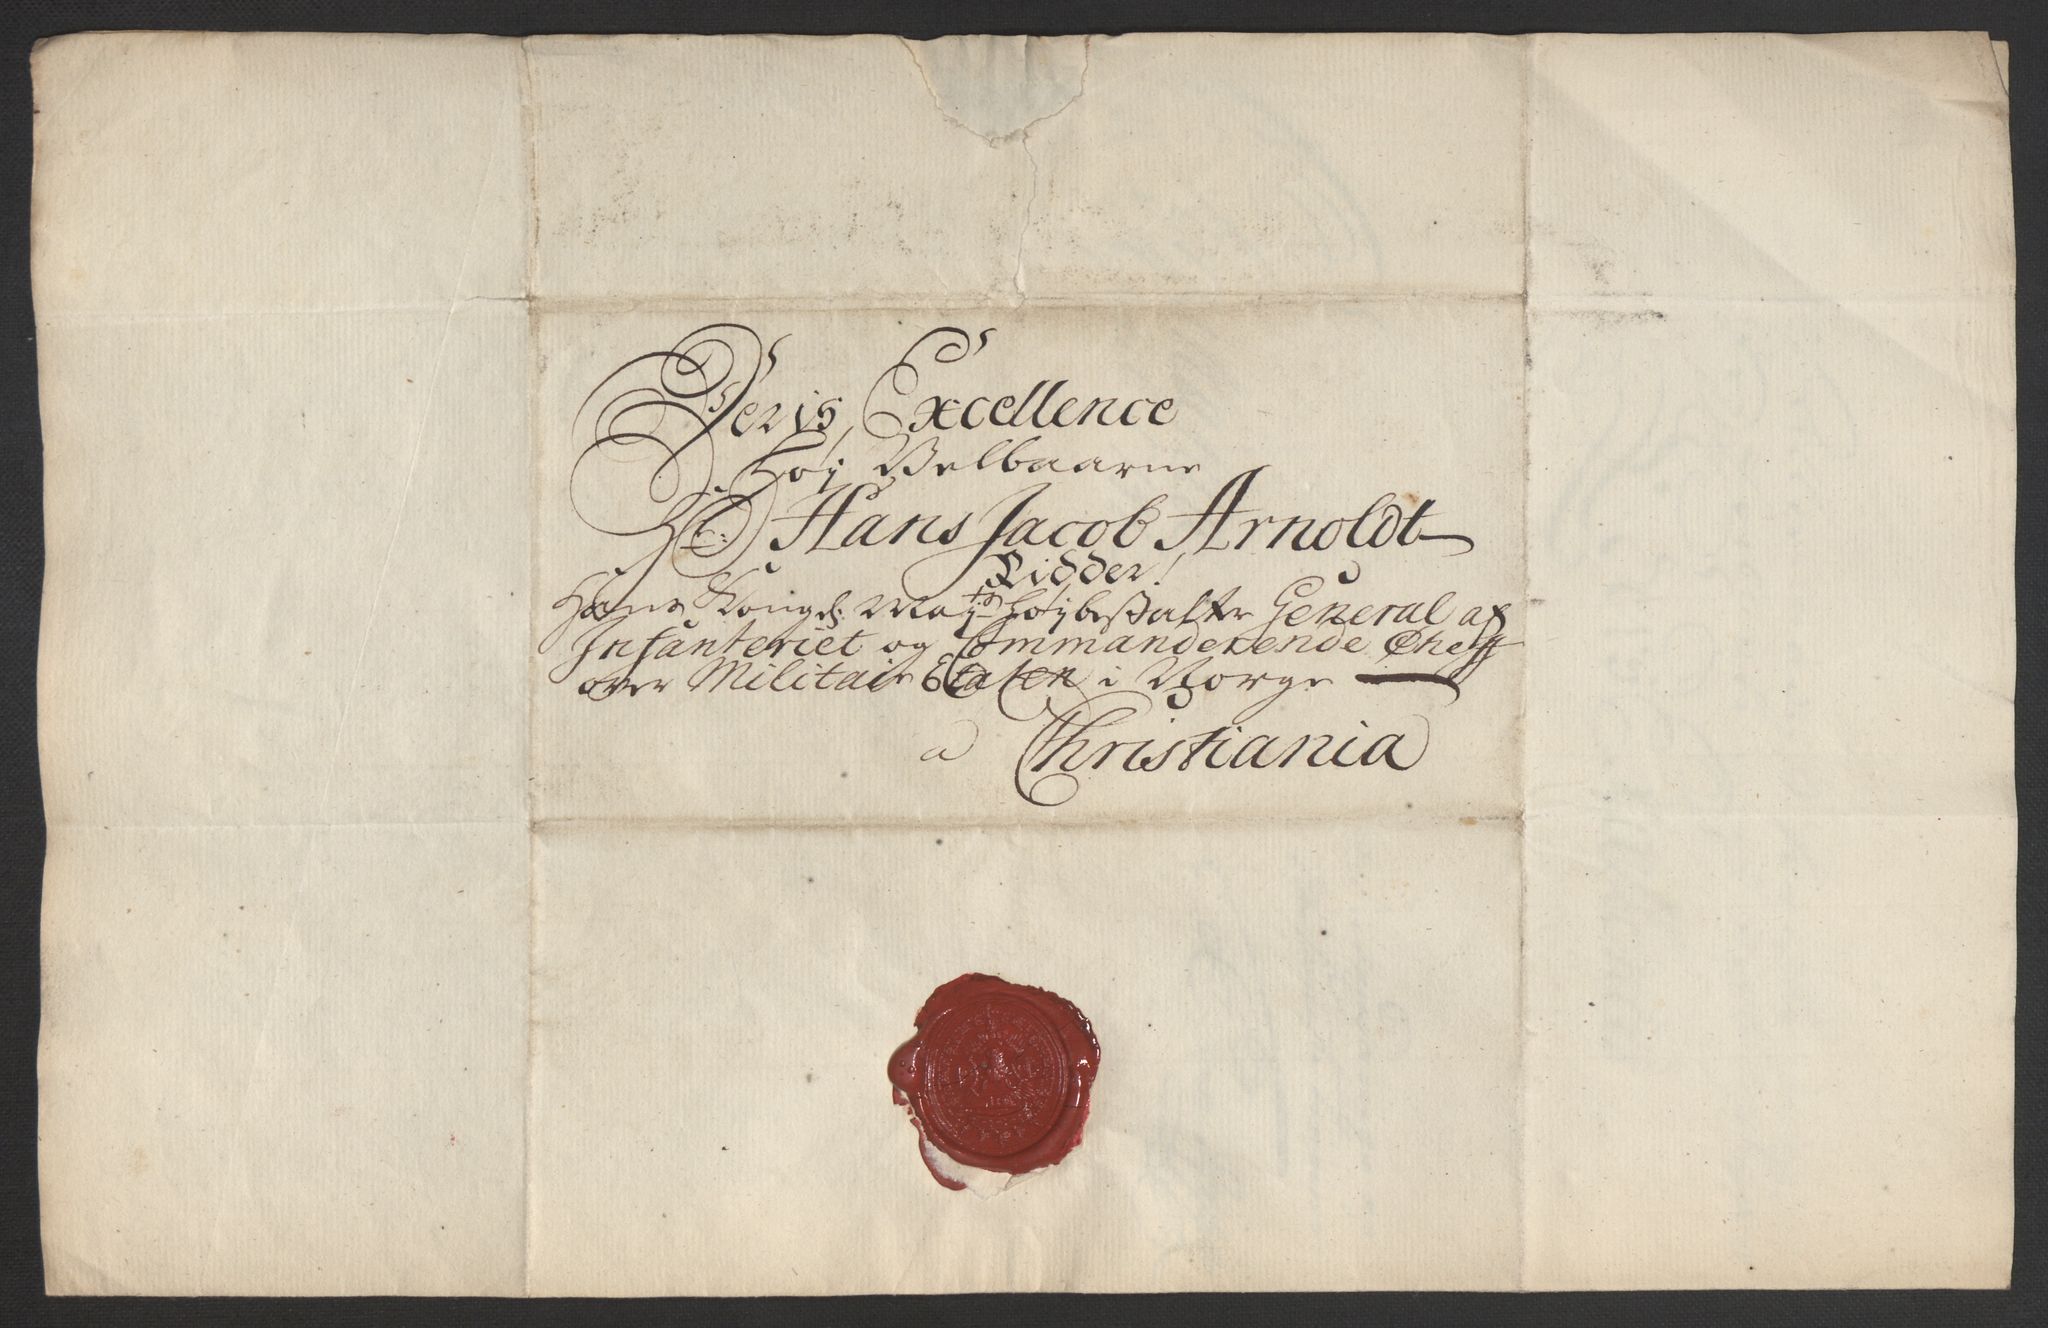 Deris Excellence
Høy Velbaarne
Hr: Hans Jacob Arnoldt
Ridder!
Hans Kongel: Mayts Høybestalter General af
Infanteriet og Commanderende Cheff
over Militair Etaten i Norge
a Christiania